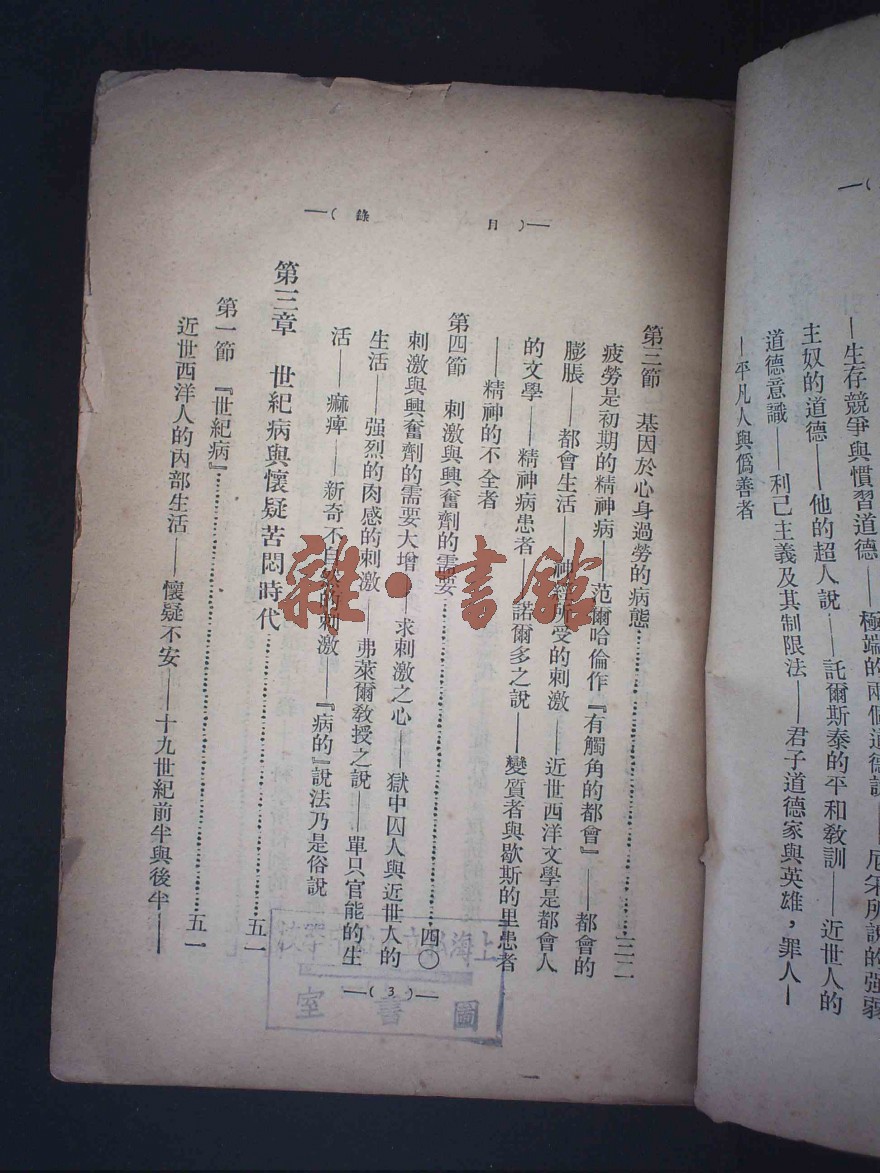 —生存競爭與慣習道德——極端的兩個道德說——尼采所說的强弱
主奴的道德——他的超人說——託爾斯泰的平和敎訓——近世人的
道德意識——利己主義及其制限法——君子道德家與英雄，罪人—
—平凡人與僞善者
—（目錄）—
第三節 基因於心身過勞的病態……三二
疲勞是初期的精神病——范爾哈倫作『有觸角的都會』——都會的
膨脹——都會生活——神經所受的刺激——近世西洋文學是都會人
的文學——精神病患者——諾爾多之說——變質者與歇斯的里患者
——精神的不全者
第四節 刺激與興奮劑的需要……四〇
刺激與興奮劑的需要大增——求刺激之心——獄中囚人與近世人的
生活——强烈的肉感的刺激——弗萊爾敎授之說——單只官能的生
活——痲痺——新奇不自然的刺激——『病的』說法乃是俗說
第三章 世紀病與懷疑苦悶時代……五一
第一節 『世紀病』……五一
近世西洋人的內部生活——懷疑不安——十九世紀前半與後半——
—（3）—
雜·書館
上海
圖書室